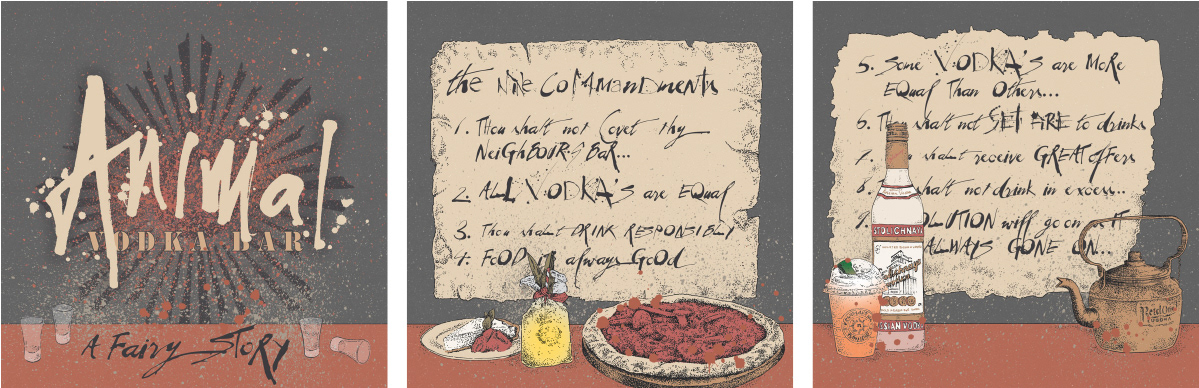 Animal
VODKA BAR
A Fairy StoRy
the NiNe CoMManDments
1. Thou shalt not Covet thy
NeiGhBOUR'S BaR...
2. ALL VODKA'S are EQual
3. Thou shalt DRINK RESPONSIBLY
4. FoOD is always GoOd
5. Some VODKA'S are MoRe
EQual Than Others...
6. shalt not SET FIRE to drinks
7. shalt receive GREAT offers
8. shalt not drink in excess...
9. will go on as IT
ALWAYS GONE ON...
STOLICHNAYA
Stolichnaya
RUSSIAN VODKA